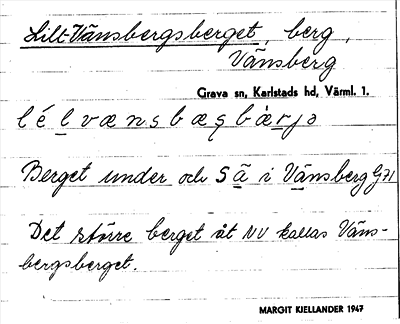 Lilt-Vänsbergsberget, berg,
Vänsberg
Grava sn, Karlstads hd, Värml. l.
Berget under och S ä i Vänsberg G71
Det större berget åt NV kallas Väns-
bergsberget.
MARGIT KJELLANDER 1947